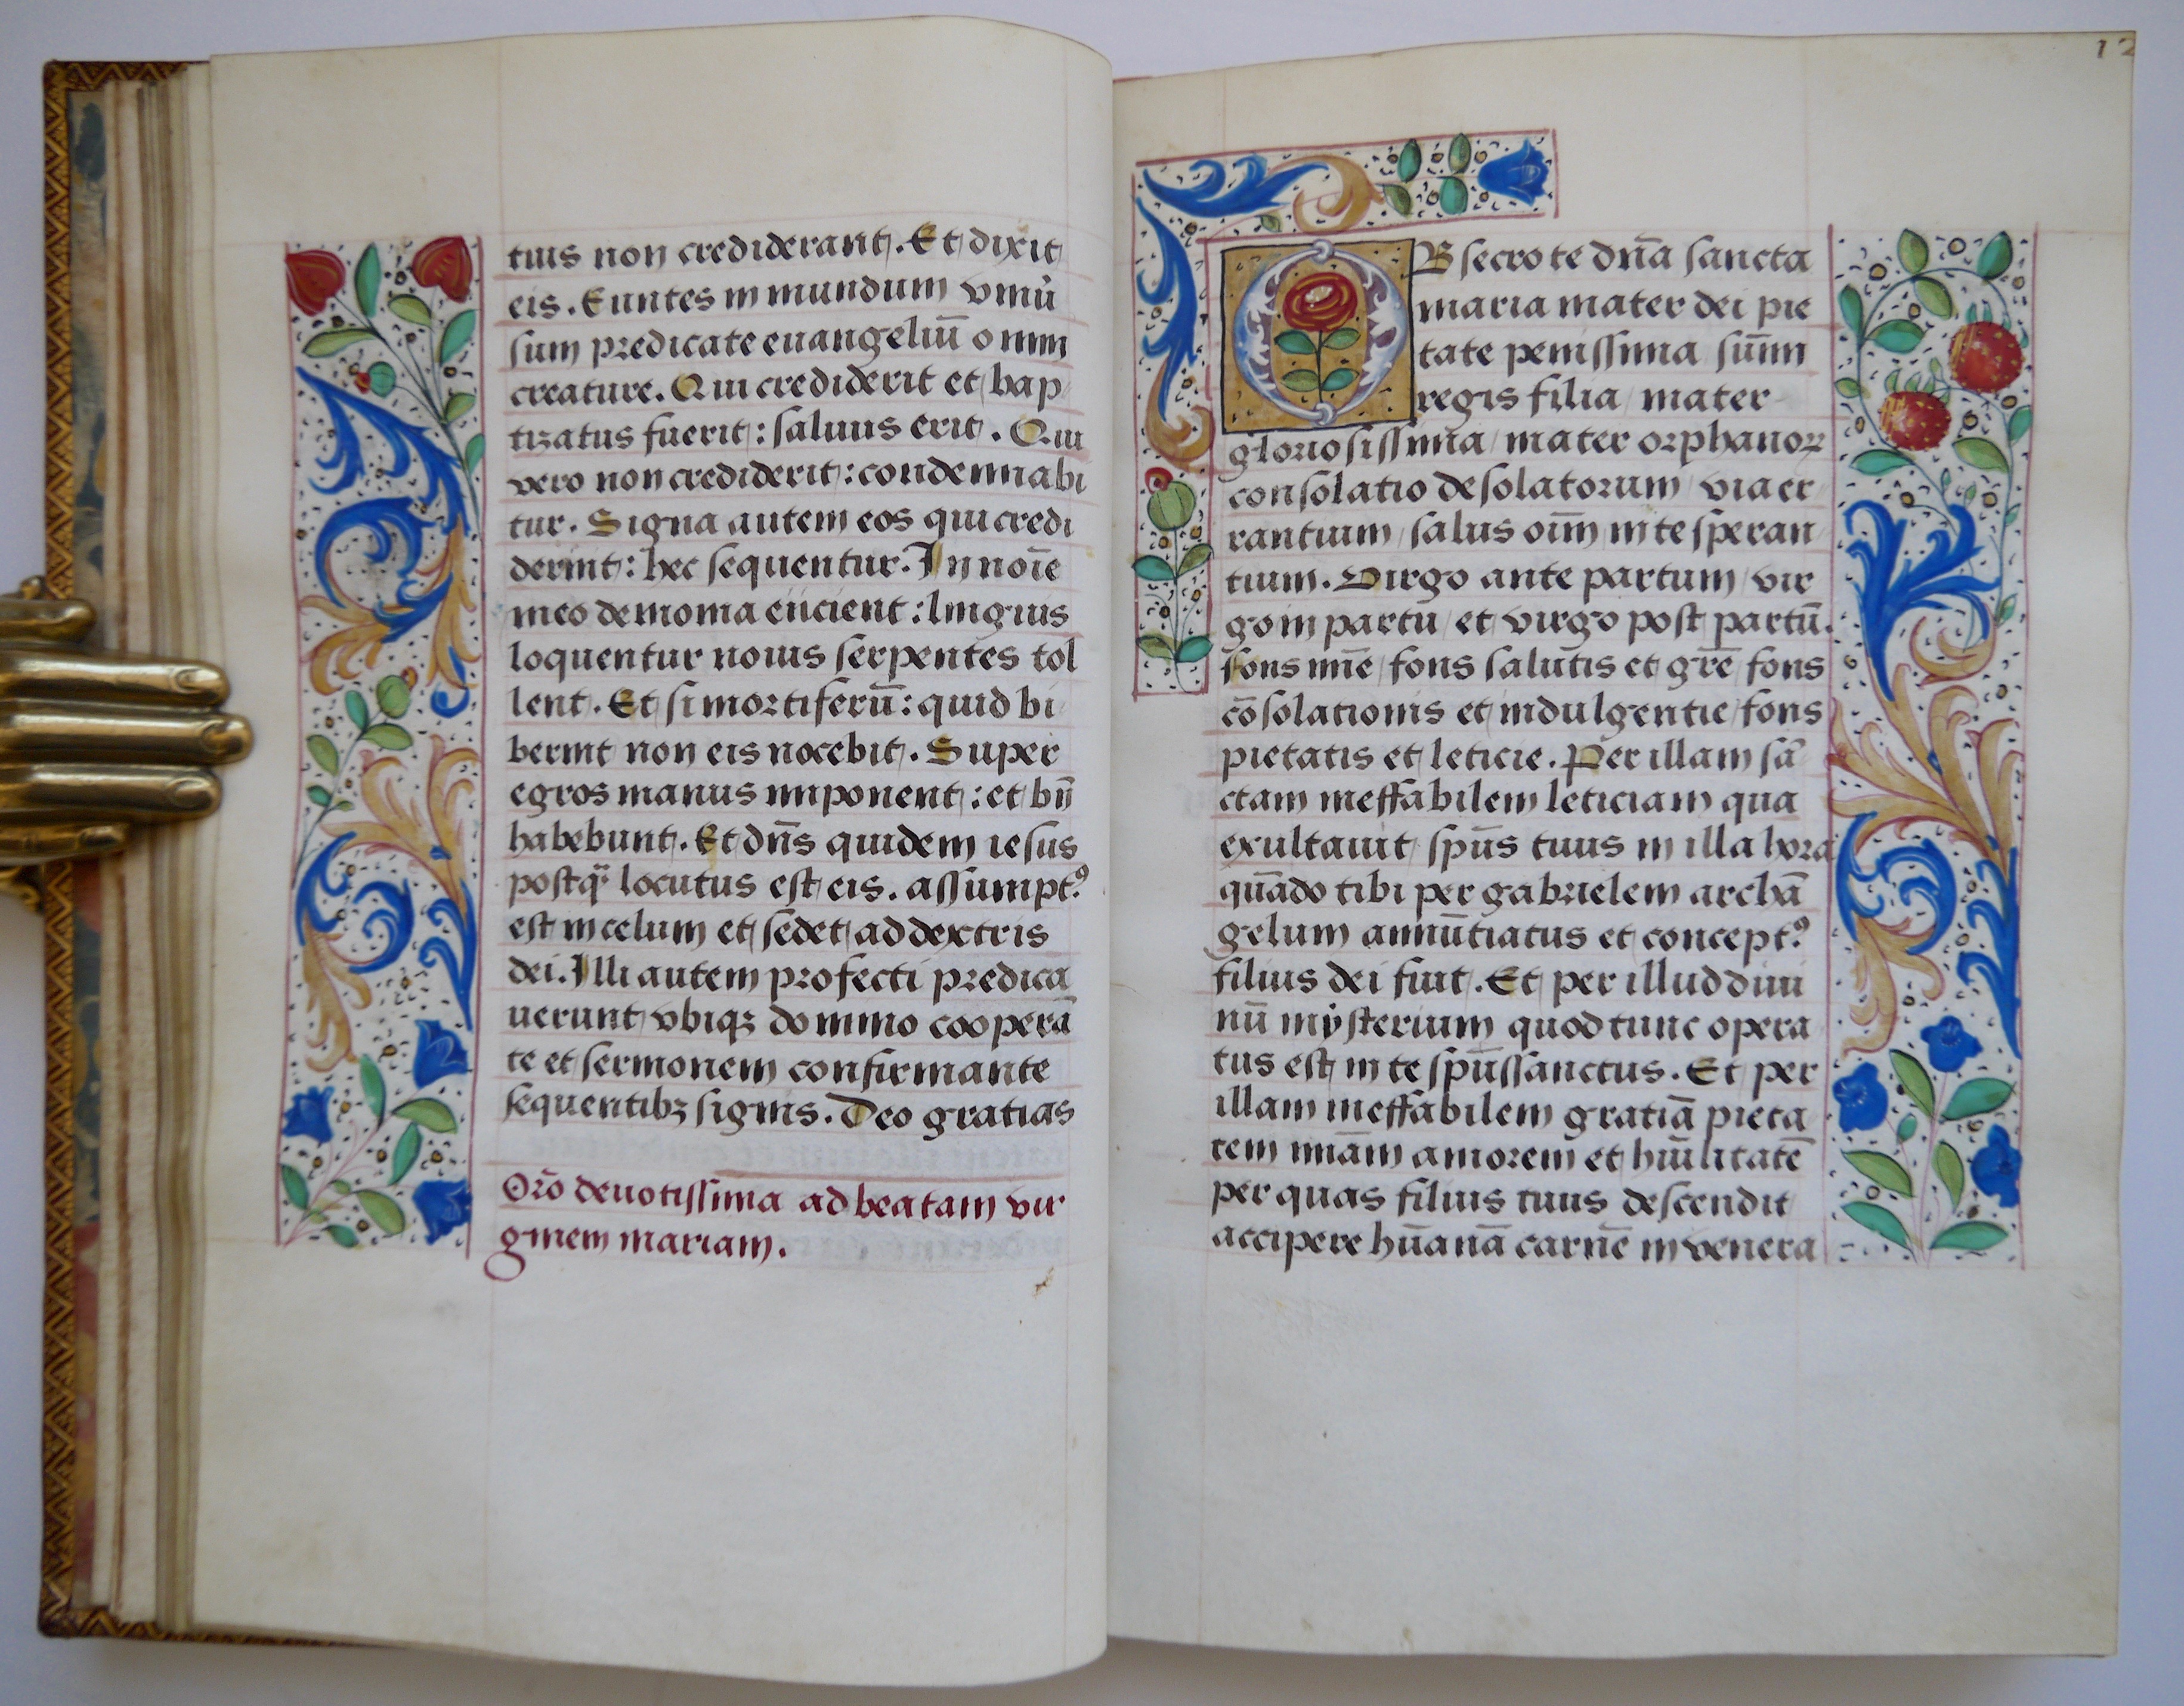 tuis non crediderant. Et dixit
eis. Euntes in mundum vniũ
sum predicate euangeliū omni
creature. Qui crediderit et bap
tizatus fuerit: saluus erit. Qui
vero non crediderit: condemnabi
tur. Signa autem eos qui credi
derint: hec sequentur. In noīe
meo demonia eiicient: linguis
loquentur nouis serpentes tol
lent. Et si mortiferū: quid bi
berint non eis nocebit. Super
egros manus imponent: et bñ
habebunt. Et dñs quidem iesus
postq̃ locutus est eis. assumptꝰ
est in celum et sedet ad dextris
dei. Illi autem profecti predica
uerunt vbiqꝫ domino cooperā
te et sermonem confirmante
sequentibꝫ signis. Deo gratias
Orō deuotissima ad beatam vir
ginem mariam.
12
OBsecro te dñā sancta
maria mater dei pie
tate plenissima sūmi
regis filia mater
gloriosissima mater orphanoꝝ
consolatio desolatorum via er
rantium salus oīm in te speran
tium. Virgo ante partum vir
go in partu et virgo post partū.
fons mīe fons salutis et grē fons
cōsolationis et indulgentie fons
pietatis et leticie. Per illam sā
ctam ineffabilem leticiam qua
exultauit spūs tuus in illa hora
quādo tibi per gabrielem archā
gelum annūtiatus et conceptꝰ
filius dei fuit. Et per illud diui
nū mysterium quod tunc opera
tus est in te spūssanctus. Et per
illam ineffabilem gratiā pieta
tem miām amorem et hūilitatē
per quas filius tuus descendit
accipere hūanā carnē in venera